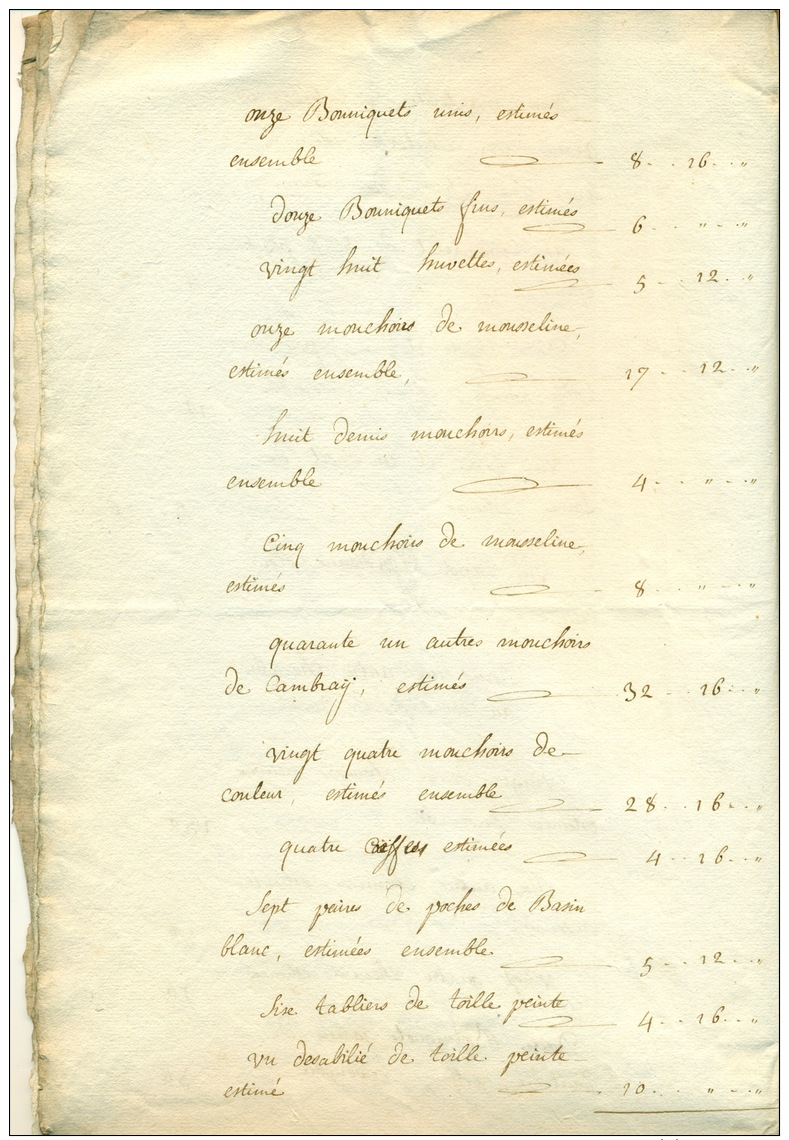 onze Bonniquets unis, estimés
ensemble 8 .. 16 .. "
douze Bonniquets fins, estimés 6 .. " .. "
vingt huit huvettes, estimées 5 .. 12 .. "
onze mouchoirs de mousseline,
estimés ensemble, 17 .. 12 .. "
huit demis mouchoirs, estimés
ensemble 4 .. " .. "
Cinq mouchoirs de mousseline,
estimés 8 .. " .. "
quarante un autres mouchoirs
de Cambraÿ, estimés 32 .. 16 .. "
vingt quatre mouchoirs de
couleur, estimés ensemble 28 .. 16 .. "
quatre coiffes estimées 4 .. 16 .. "
Sept peires de poches de Basin
blanc, estimées ensemble 5 .. 12 .. "
Sixe tabliers de toille peinte 4 .. 16 .. "
vn desabilié de toille peinte
estimé 10 .. " .. "